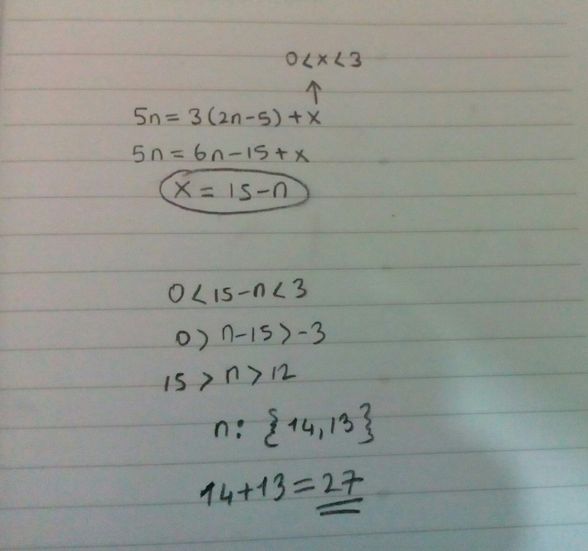 0<x<3
↑
5n = 3(2n-5)+x
5n = 6n-15+x
x = 15-n
0<15-n<3
0>n-15>-3
15>n>12
n: {14,13}
14+13=27